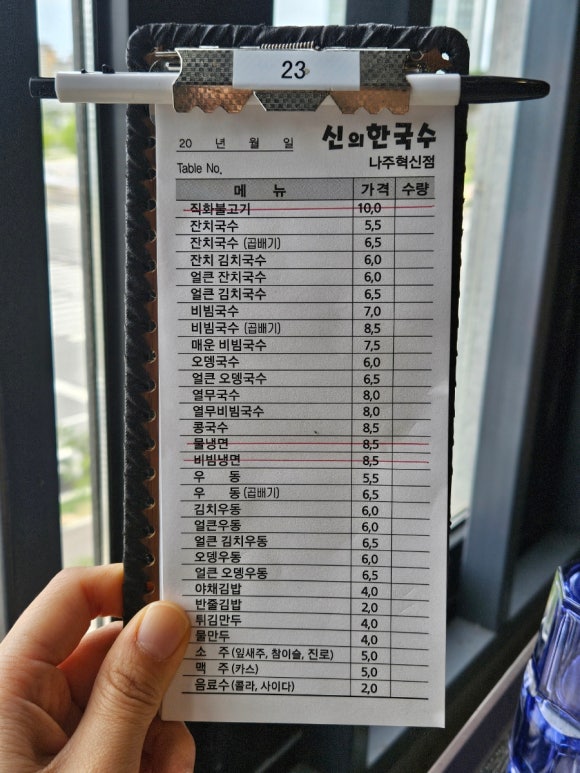 23
20 년 월 일 신의한국수
나주혁신점
Table No.
메 뉴 가격 수량
직화불고기 10,0
잔치국수 5,5
잔치국수 (곱배기) 6,5
잔치 김치국수 6,0
얼큰 잔치국수 6,0
얼큰 김치국수 6,5
비빔국수 7,0
비빔국수 (곱배기) 8,5
매운 비빔국수 7,5
오뎅국수 6,0
얼큰 오뎅국수 6,5
열무국수 8,0
열무비빔국수 8,0
콩국수 8,5
물냉면 8,5
비빔냉면 8,5
우 동 5,5
우 동 (곱배기) 6,5
김치우동 6,0
얼큰우동 6,0
얼큰 김치우동 6,5
오뎅우동 6,0
얼큰 오뎅우동 6,5
야채김밥 4,0
반줄김밥 2,0
튀김만두 4,0
물만두 4,0
소 주 (잎새주, 참이슬, 진로) 5,0
맥 주 (카스) 5,0
음료수 (콜라, 사이다) 2,0